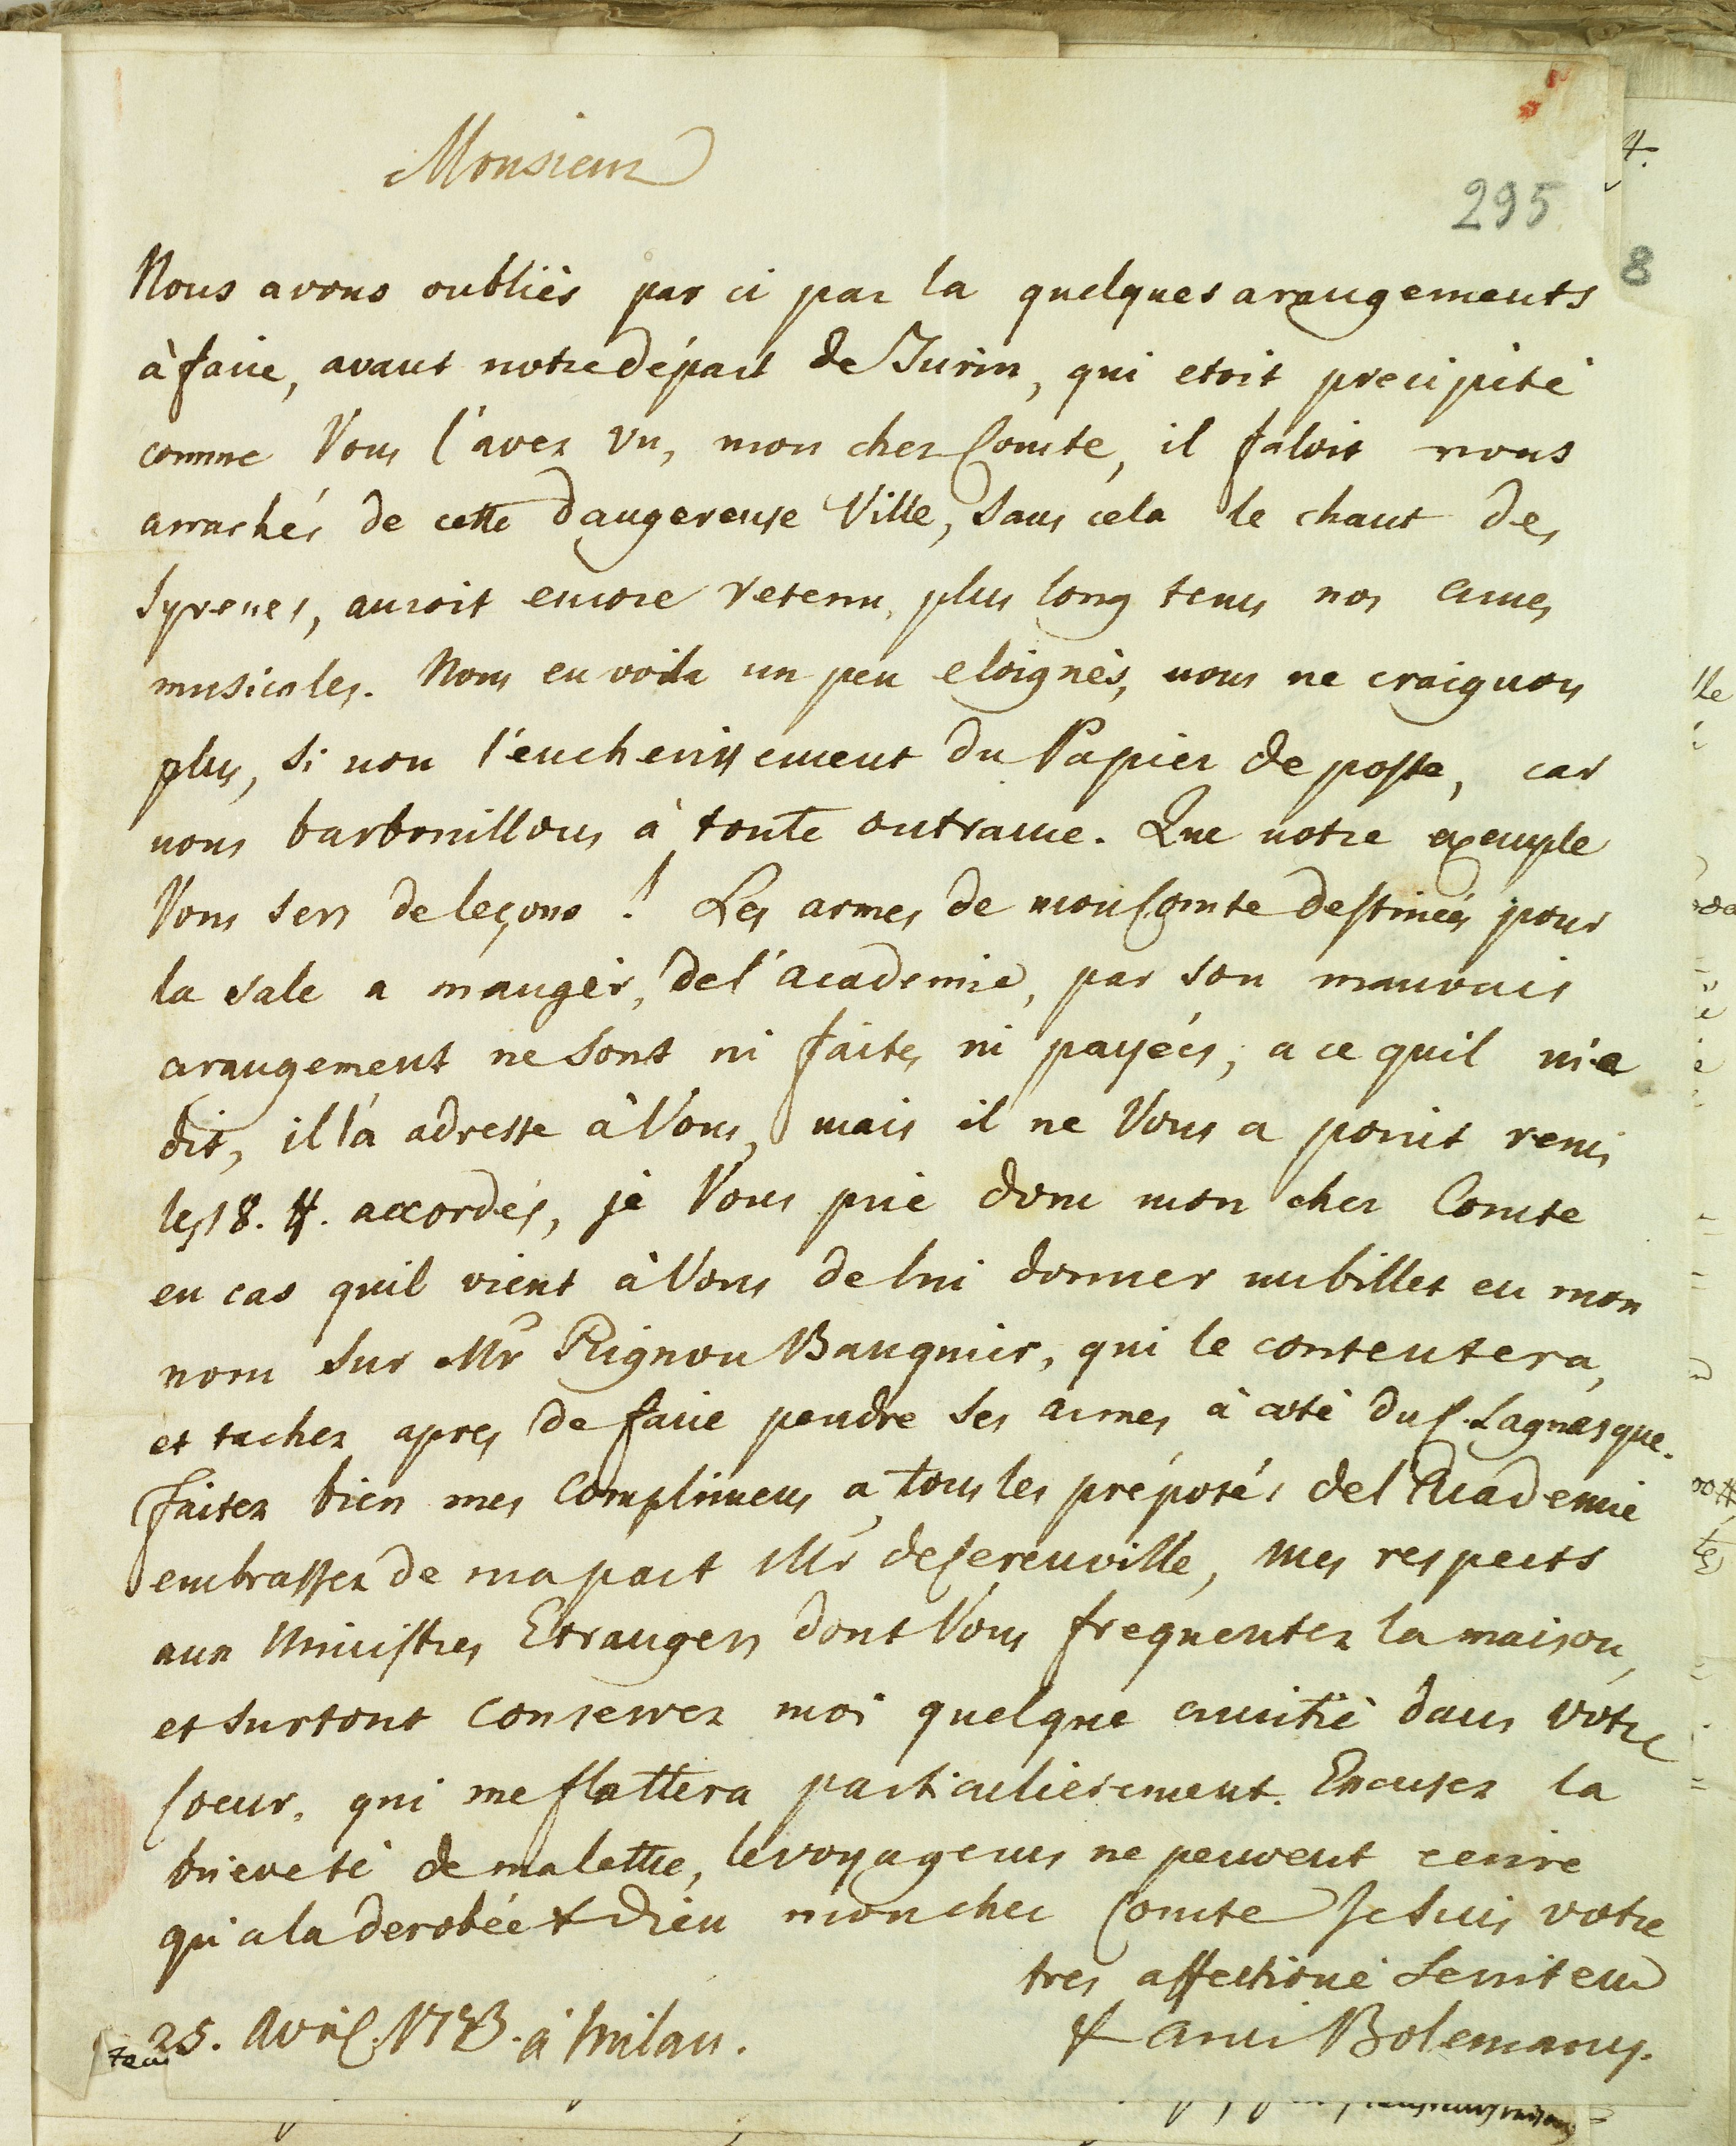 Monsieur
295
8
Nous avons oubliès par ci par la quelques arangements
à faire, avant notre départ de Turin, qui etoit precipité
comme Vous l'avez vu, mon cher Comte, il faloit nous
arrachés de cette dangereuse Ville, sans cela le chant des
Syrenes, auroit encore retenu plus long tems nos ames
musicales. Nous en voila un peu eloignès, nous ne craignons
plus, si non l'encherissement du Papier de poste, car
nous barbouillons à toute outrance. Que notre exemple
Vous sers de leçons! Les armes de mon Comte destineés pour
la sale a manger, de l'academie, par son mauvais
arangement ne sont ni faites ni payéés, a ce quil m'a
dit, il l'a adresse à Vous, mais il ne Vous a point remis
les 18. ₶. accordés, je Vous prie donc mon cher Comte
en cas quil vient à Vous de lui donner un billet en mon
nom sur Mr Rignon Banquier, qui le contentera,
et tachez apres de faire pendre ses armes à coté du C. Lagnasque.
Faitez bien mes Complimens a tous les préposés de l'Academie
embrassez de ma part Mr de Cerenville, mes respects
aux Ministres Etrangers dont Vous frequentez la maison,
et surtout conservez moi quelque amitié dans votre
Coeur, qui me flattera particulierement. Excusez la
brieveté de ma lettre, les voyageurs ne peuvent ecrire
qu'a la derobée adieu mon cher Comte Je suis votre
tres affectioné serviteur
& ami Bolemany.
25. Avril. 1783. à Milan.